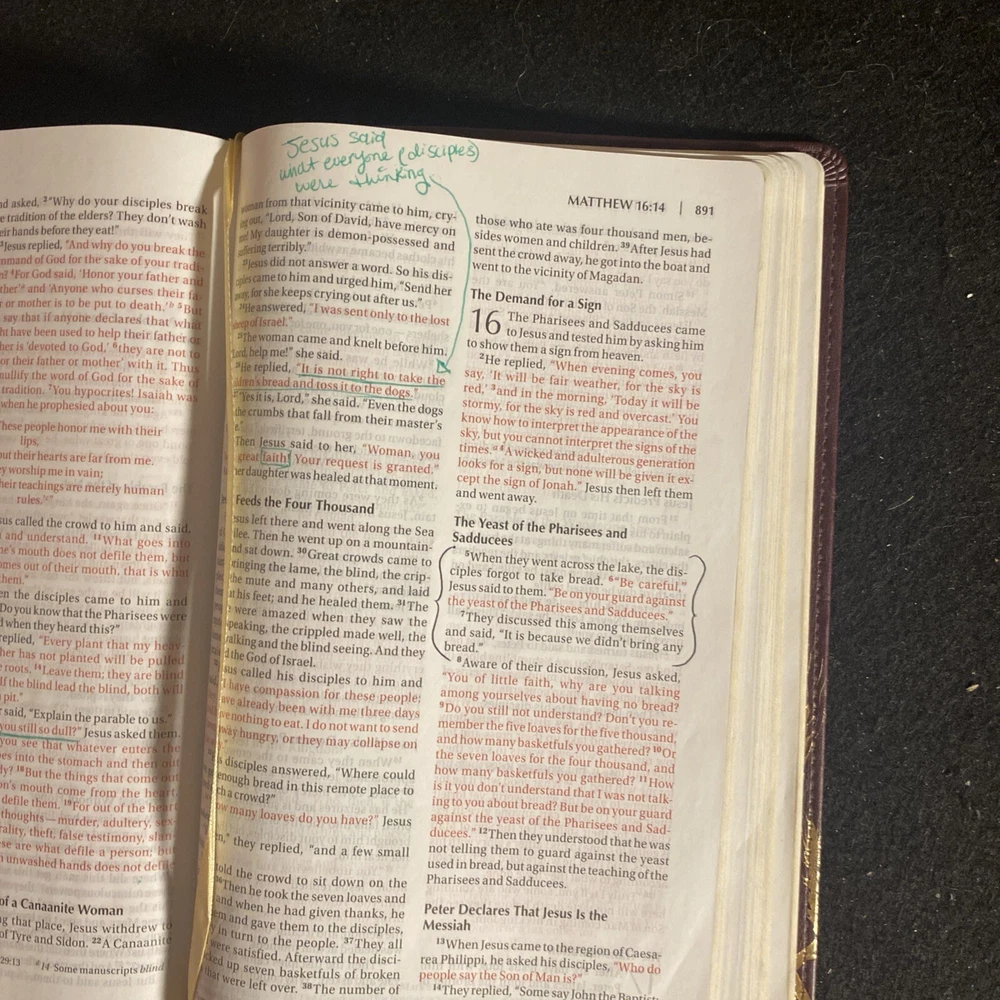 nd asked, 2“Why do your disciples break
e tradition of the elders? They don’t wash
eir hands before they eat!”
3Jesus replied, “And why do you break the
mmand of God for the sake of your tradi-
4For God said, ‘Honor your father and
ther’a and ‘Anyone who curses their fa-
r or mother is to be put to death.’b 5But
say that if anyone declares that what
ht have been used to help their father or
her is ‘devoted to God,’ 6they are not to
or their father or mother’ with it. Thus
nullify the word of God for the sake of
tradition. 7You hypocrites! Isaiah was
when he prophesied about you:
hese people honor me with their
lips,
but their hearts are far from me.
ey worship me in vain;
heir teachings are merely human
rules.’c”
sus called the crowd to him and said,
and understand. 11What goes into
ne’s mouth does not defile them, but
omes out of their mouth, that is what
them.”
en the disciples came to him and
Do you know that the Pharisees were
d when they heard this?”
replied, “Every plant that my heav-
her has not planted will be pulled
e roots. 14Leave them; they are blind
If the blind lead the blind, both will
pit.”
said, “Explain the parable to us.”
you still so dull?” Jesus asked them.
you see that whatever enters the
oes into the stomach and then out
dy? 18But the things that come out
on’s mouth come from the heart,
defile them. 19For out of the heart
thoughts—murder, adultery, sex-
rality, theft, false testimony, slan-
ese are what defile a person; but
h unwashed hands does not defile
of a Canaanite Woman
ng that place, Jesus withdrew to
of Tyre and Sidon. 22A Canaanite
29:13 d 14 Some manuscripts blind
Jesus said
what everyone (disciples)
were thinking
MATTHEW 16:14 | 891
woman from that vicinity came to him, cry-
ing out, “Lord, Son of David, have mercy on
My daughter is demon-possessed and
suffering terribly.”
23Jesus did not answer a word. So his dis-
ciples came to him and urged him, “Send her
away, for she keeps crying out after us.”
24He answered, “I was sent only to the lost
sheep of Israel.”
25The woman came and knelt before him.
“Lord, help me!” she said.
26He replied, “It is not right to take the
children’s bread and toss it to the dogs.”
“Yes it is, Lord,” she said. “Even the dogs
the crumbs that fall from their master’s
Then Jesus said to her, “Woman, you
great faith! Your request is granted.”
her daughter was healed at that moment.
Feeds the Four Thousand
esus left there and went along the Sea
lee. Then he went up on a mountain-
nd sat down. 30Great crowds came to
bringing the lame, the blind, the crip-
the mute and many others, and laid
at his feet; and he healed them. 31The
were amazed when they saw the
speaking, the crippled made well, the
alking and the blind seeing. And they
d the God of Israel.
sus called his disciples to him and
I have compassion for these people;
ave already been with me three days
ve nothing to eat. I do not want to send
way hungry, or they may collapse on
s disciples answered, “Where could
enough bread in this remote place to
ch a crowd?”
ow many loaves do you have?” Jesus
en,” they replied, “and a few small
told the crowd to sit down on the
36Then he took the seven loaves and
and when he had given thanks, he
em and gave them to the disciples,
y in turn to the people. 37They all
were satisfied. Afterward the disci-
ked up seven basketfuls of broken
that were left over. 38The number of
those who ate was four thousand men, be-
sides women and children. 39After Jesus had
sent the crowd away, he got into the boat and
went to the vicinity of Magadan.
The Demand for a Sign
16 The Pharisees and Sadducees came
to Jesus and tested him by asking him
to show them a sign from heaven.
2He replied, “When evening comes, you
say, ‘It will be fair weather, for the sky is
red,’ 3and in the morning, ‘Today it will be
stormy, for the sky is red and overcast.’ You
know how to interpret the appearance of the
sky, but you cannot interpret the signs of the
times.a 4A wicked and adulterous generation
looks for a sign, but none will be given it ex-
cept the sign of Jonah.” Jesus then left them
and went away.
The Yeast of the Pharisees and
Sadducees
5When they went across the lake, the dis-
ciples forgot to take bread. 6“Be careful,”
Jesus said to them. “Be on your guard against
the yeast of the Pharisees and Sadducees.”
7They discussed this among themselves
and said, “It is because we didn’t bring any
bread.”
8Aware of their discussion, Jesus asked,
“You of little faith, why are you talking
among yourselves about having no bread?
9Do you still not understand? Don’t you re-
member the five loaves for the five thousand,
and how many basketfuls you gathered? 10Or
the seven loaves for the four thousand, and
how many basketfuls you gathered? 11How
is it you don’t understand that I was not talk-
ing to you about bread? But be on your guard
against the yeast of the Pharisees and Sad-
ducees.” 12Then they understood that he was
not telling them to guard against the yeast
used in bread, but against the teaching of the
Pharisees and Sadducees.
Peter Declares That Jesus Is the
Messiah
13When Jesus came to the region of Caesa-
rea Philippi, he asked his disciples, “Who do
people say the Son of Man is?”
14They replied, “Some say John the Baptist;